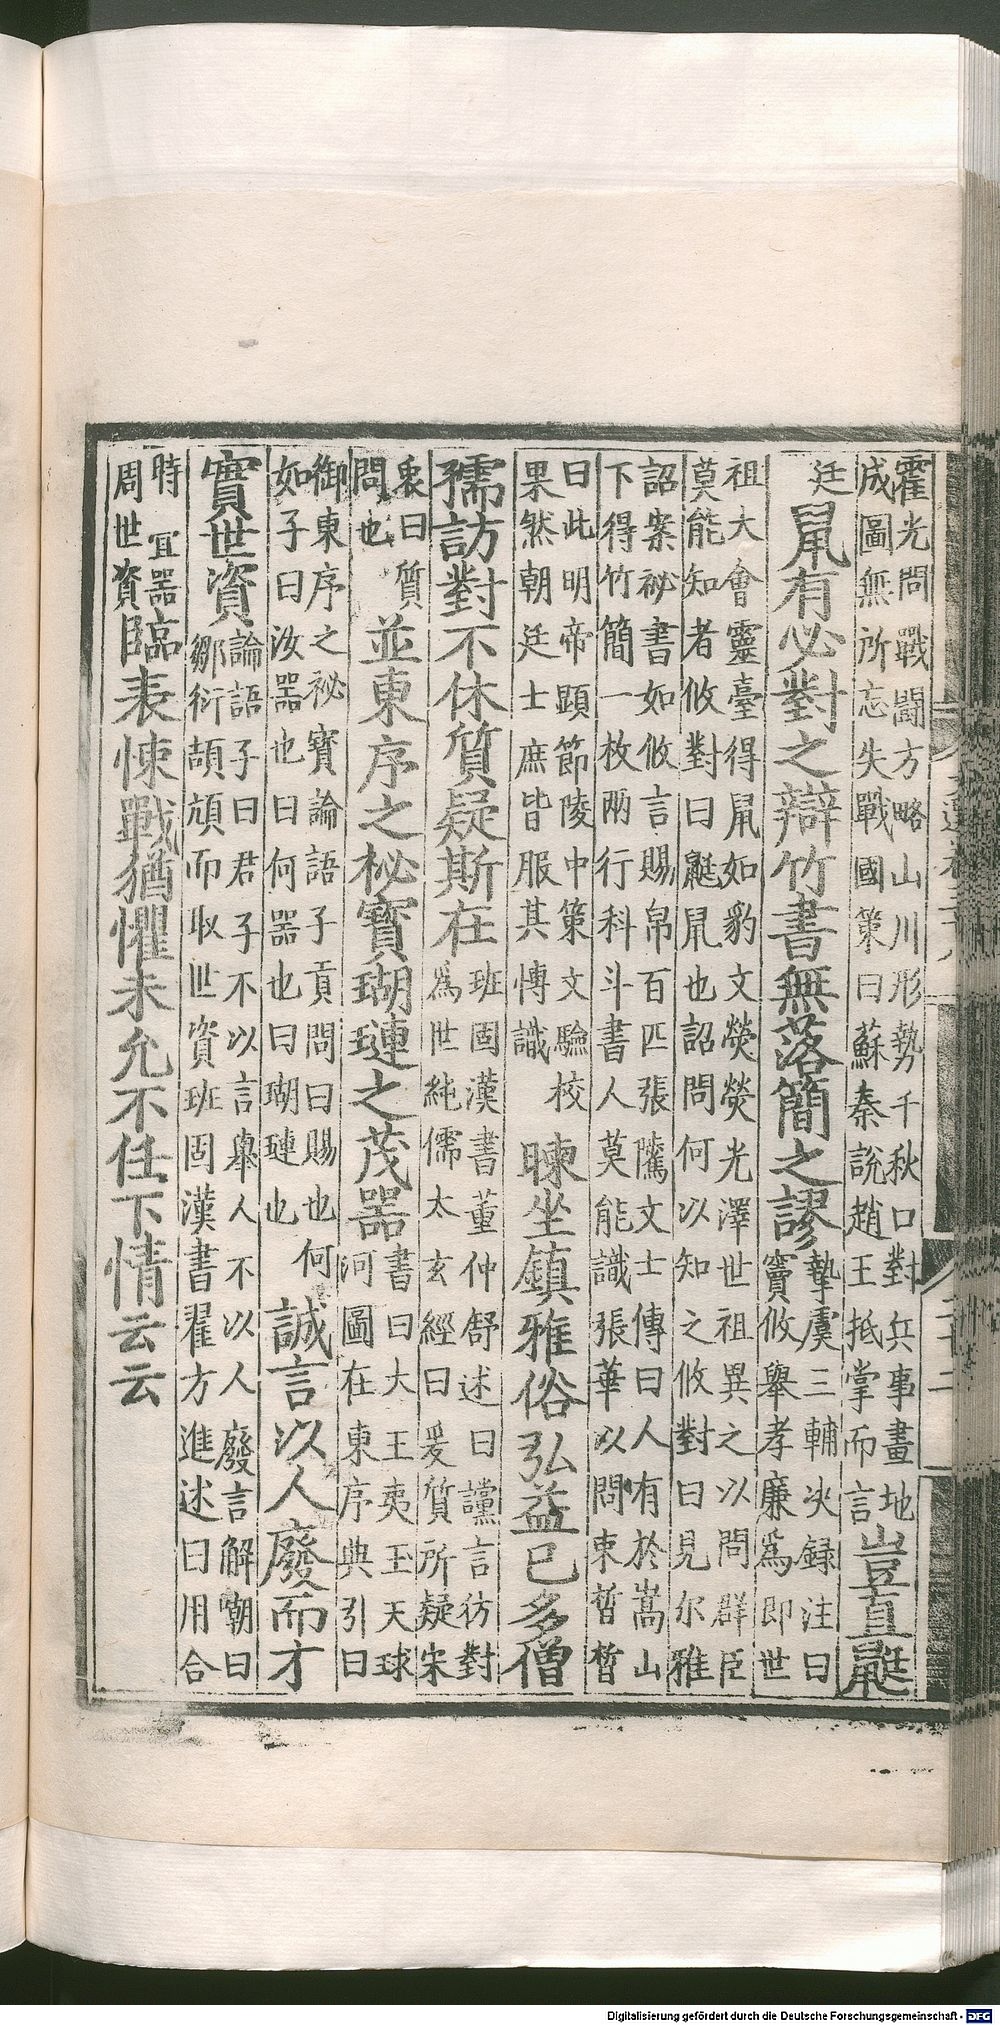 霍光問戰鬬方略山川形勢千秋口對兵事畫地
成圖無所忘失戰國策曰蘇秦說趙王抵掌而言
豈直鼮
廷
鼠有必對之辯竹書無落簡之謬
摯虞三輔決録注曰
竇攸舉孝廉為即世
祖大會靈臺得鼠如豹文熒熒光澤世祖異之以問群臣
莫能知者攸對曰鼮鼠也詔問何以知之攸對曰見尔雅
詔案祕書如攸言賜帛百匹張隲文士傳曰人有於嵩山
下得竹簡一枚兩行科斗書人莫能識張華以問束晳晳
曰此明帝顯節陵中策文驗校
果然朝廷士庶皆服其愽識
暕坐鎮雅俗弘益已多僧
孺訪對不休質疑斯在
班固漢書董仲舒述曰讜言彷對
為世純儒太玄經曰爰質所疑宋
衷曰質
問也
並東序之秘寶瑚璉之茂器
書曰大王夷玉天球
河圖在東序典引曰
御東序之祕寶論語子貢問曰賜也何
如子曰汝器也曰何器也曰瑚璉也
誠言以人廢而才
實世資
論語子曰君子不以言舉人不以人廢言解嘲曰
鄒衍頡頏而取世資班固漢書翟方進述曰用合
時宜器
周世資
臨表悚戰猶懼未允不任下情云云
Digitalisierung gefördert durch die Deutsche Forschungsgemeinschaft - DFG